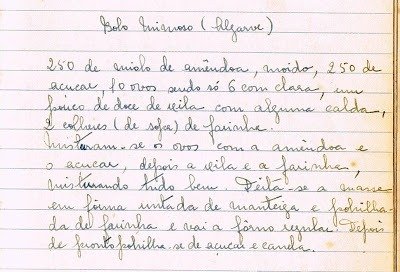 Bolo Mimoso (Algarve)
250 de miolo de amêndoa, moido, 250 de
açucar, 10 ovos sendo só 6 com clara, um
pouco de doce de gila com alguma calda,
2 colheres (de sopa) de farinha.
Misturam-se os ovos com a amêndoa e
o açucar, depois a gila e a farinha,
misturando tudo bem. Deita-se a massa
em fôrma untada de manteiga e polvilha-
da de farinha e vai a fôrno regular. Depois
de pronto polvilha-se de açucar e canela.